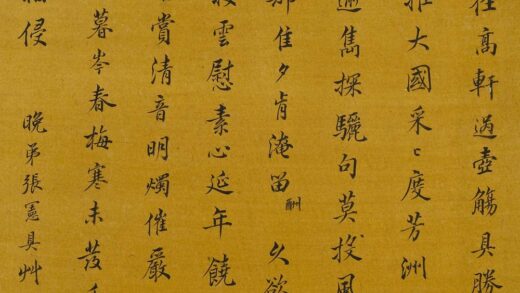 高軒過壺觴具勝
大國采〻度芳洲
雋探驪句莫投風
那佳夕肯淹留酬 久欲
雲慰素心延年饒
賞清音明燭催嚴
暮岑春梅寒未發
侵
晚弟張憲具艸